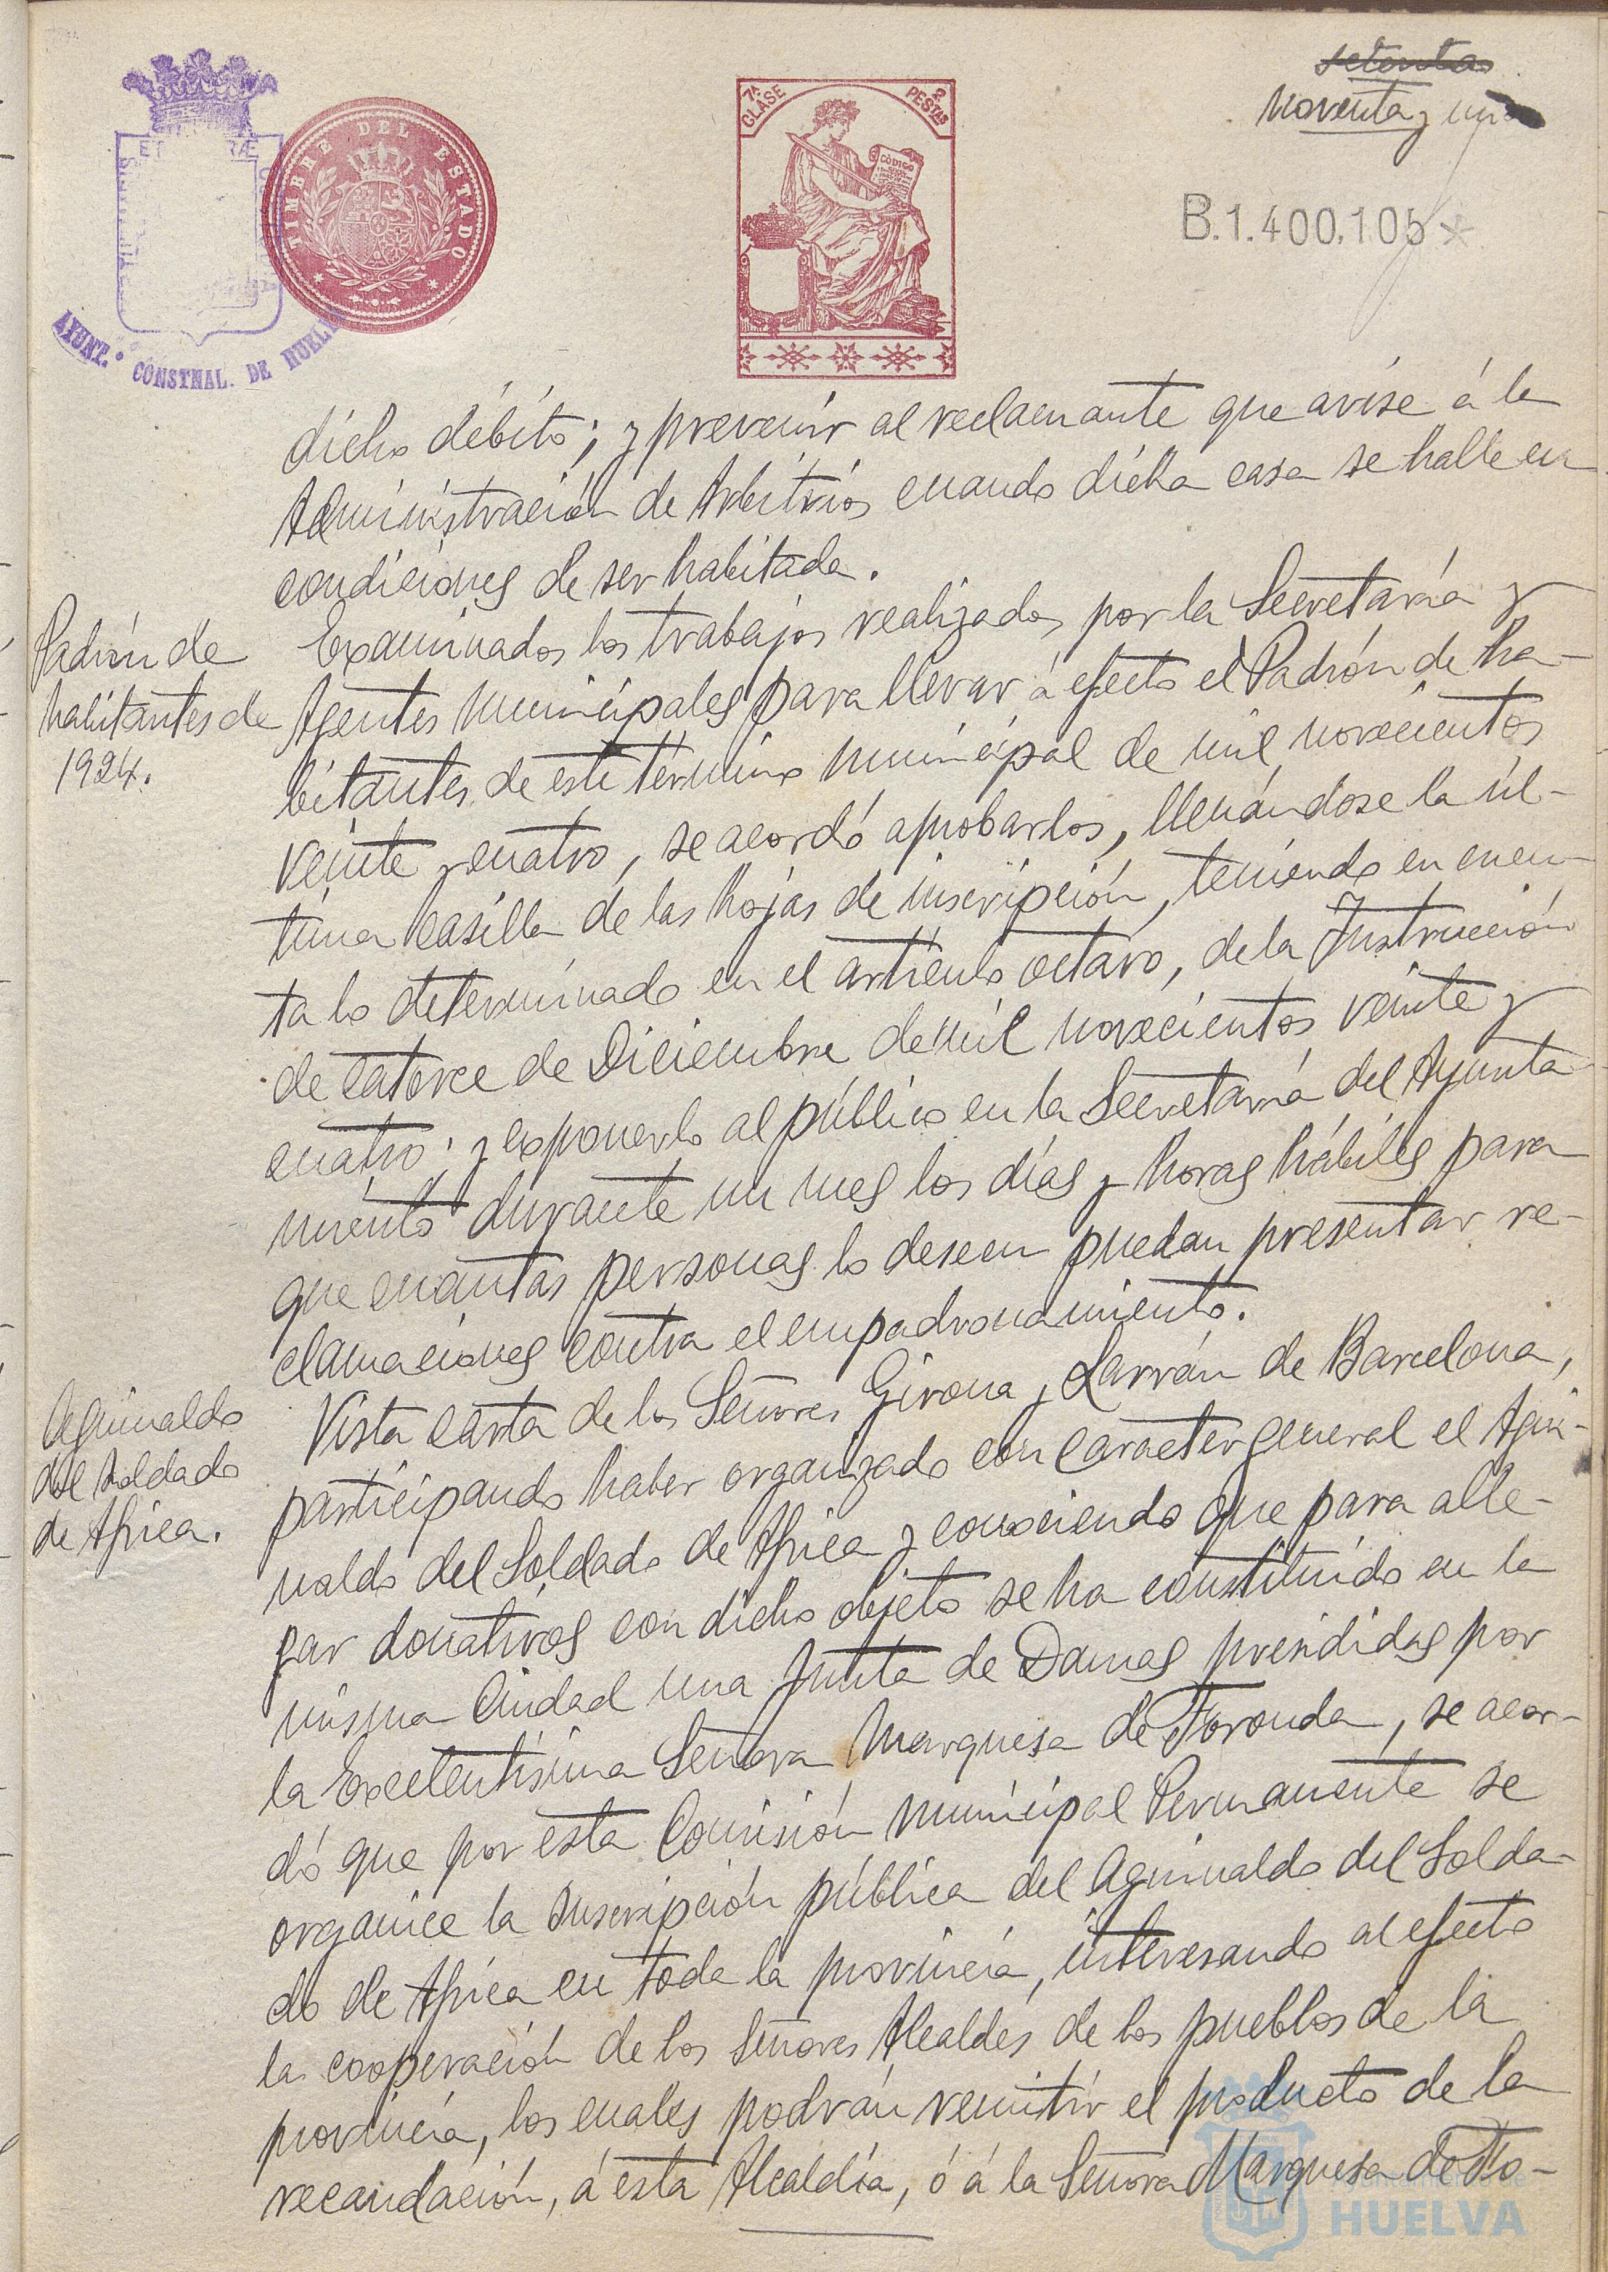 setenta
noventa y un
7ª CLASE
2 PESTAS
CÓDIGO
TIMBRE DEL ESTADO
B.1.400.105*
AYUNT. CONSTNAL. DE HUELVA
dicho débito; y prevenir al reclamante que avise á la
Administración de Arbitrios cuando dicha casa se halle en
condiciones de ser habitada.
Padrón de
habitantes de
1924.
Examinados los trabajos realizados por la Secretaría y
Agentes municipales para llevar á efecto el Padrón de ha-
bitantes de este término municipal de mil novecientos
veinte y cuatro, se acordó aprobarlos, llenándose la úl-
tima casilla de las hojas de inscripción, teniendo en cuen-
ta lo determinado en el artículo octavo, de la Instrucción
de catorce de Diciembre de mil novecientos veinte y
cuatro; y exponerlo al público en la Secretaría del Ayunta-
miento durante un mes los días y horas hábiles para
que cuantas personas lo deseen puedan presentar re-
clamaciones contra el empadronamiento.
Aguinaldo
del soldado
de Africa.
Vista carta de los Señores Girona y Larrán de Barcelona,
participando haber organizado con caracter general el Agui-
naldo del Soldado de Africa y conociendo que para alle-
gar donativos con dicho objeto se ha constituído en la
misma Ciudad una Junta de Damas presididas por
la Excelentísima Señora Marquesa de Foronda, se acor-
dó que por esta Comisión municipal Permanente se
organice la suscripción pública del Aguinaldo del Solda-
do de Africa en toda la provincia, interesando al efecto
la cooperación de los Señores Alcaldes de los pueblos de la
provincia, los cuales podrán remitir el producto de la
recaudación, á esta Alcaldía, ó á la Señora Marquesa de Fo-
Ayuntamiento de
HUELVA